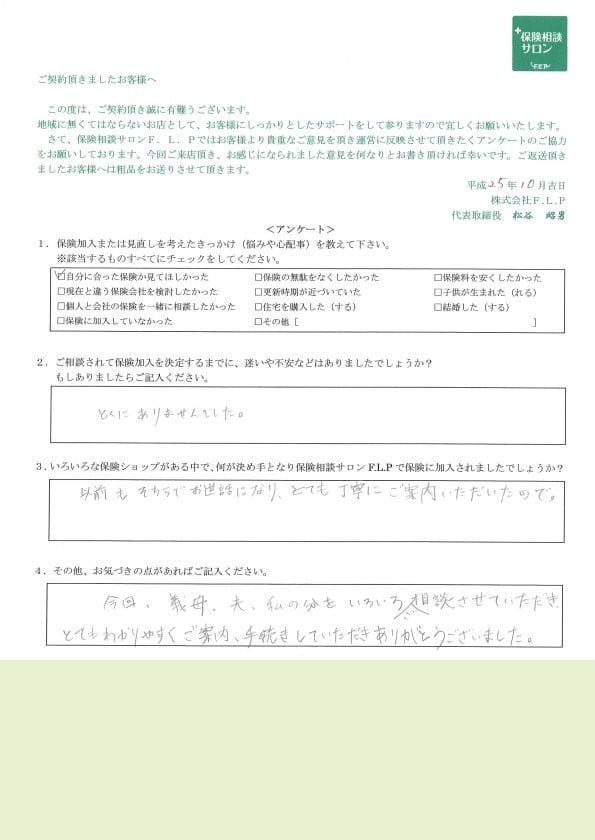 +保険相談
サロン
F.L.P
ご契約頂きましたお客様へ
この度は、ご契約頂き誠に有難うございます。
地域に無くてはならないお店として、お客様にしっかりとしたサポートをして参りますので宜しくお願いいたします。
さて、保険相談サロンF．L．Pではお客様より貴重なご意見を頂き運営に反映させて頂きたくアンケートのご協力
をお願いしております。今回ご来店頂き、お感じになられました意見を何なりとお書き頂ければ幸いです。ご返送頂き
ましたお客様へは粗品をお送りさせて頂きます。
平成25年10月吉日
株式会社F．L．P
代表取締役 松谷 昭男
＜アンケート＞
1．保険加入または見直しを考えたきっかけ（悩みや心配事）を教えて下さい。
※該当するものすべてにチェックをしてください。
☑自分に合った保険か見てほしかった □保険の無駄をなくしたかった □保険料を安くしたかった
□現在と違う保険会社を検討したかった □更新時期が近づいていた □子供が生まれた（れる）
□個人と会社の保険を一緒に相談したかった □住宅を購入した（する） □結婚した（する）
□保険に加入していなかった □その他［ ］
2．ご相談されて保険加入を決定するまでに、迷いや不安などはありましたでしょうか？
もしありましたらご記入ください。
とくにありませんでした。
3．いろいろな保険ショップがある中で、何が決め手となり保険相談サロンF.L.Pで保険に加入されましたでしょうか？
以前もそちらでお世話になり、とても丁寧にご案内いただいたので。
4．その他、お気づきの点があればご記入ください。
今回、義母、夫、私の分をいろいろご相談させていただき、
とてもわかりやすくご案内、手続きしていただきありがとうございました。